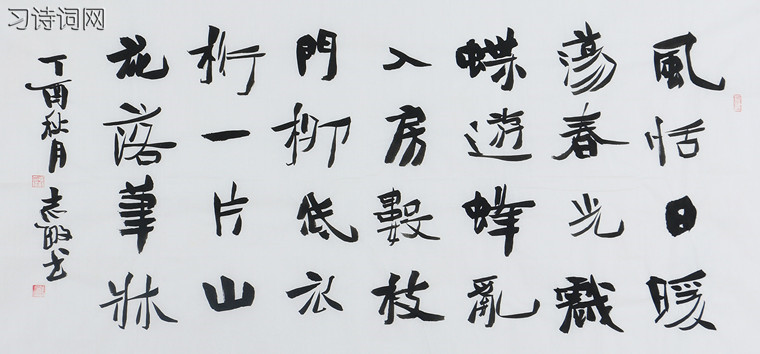 习诗词网
風恬日暖
蕩春光戲
蝶遊蜂亂
入房數枝
門柳低衣
桁一片山
花落筆牀
丁酉秋月 志敏书